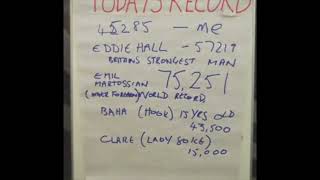 TODAYS RECORD
45285 — ME
EDDIE HALL - 57219
BRITAINS STRONGEST MAN
EMIL 75,251
MARTOSSIAN
WORLD RECORD
BAHA (HOOK) 15 YRS OLD
43,500
CLARE (LADY 80KG)
15,000